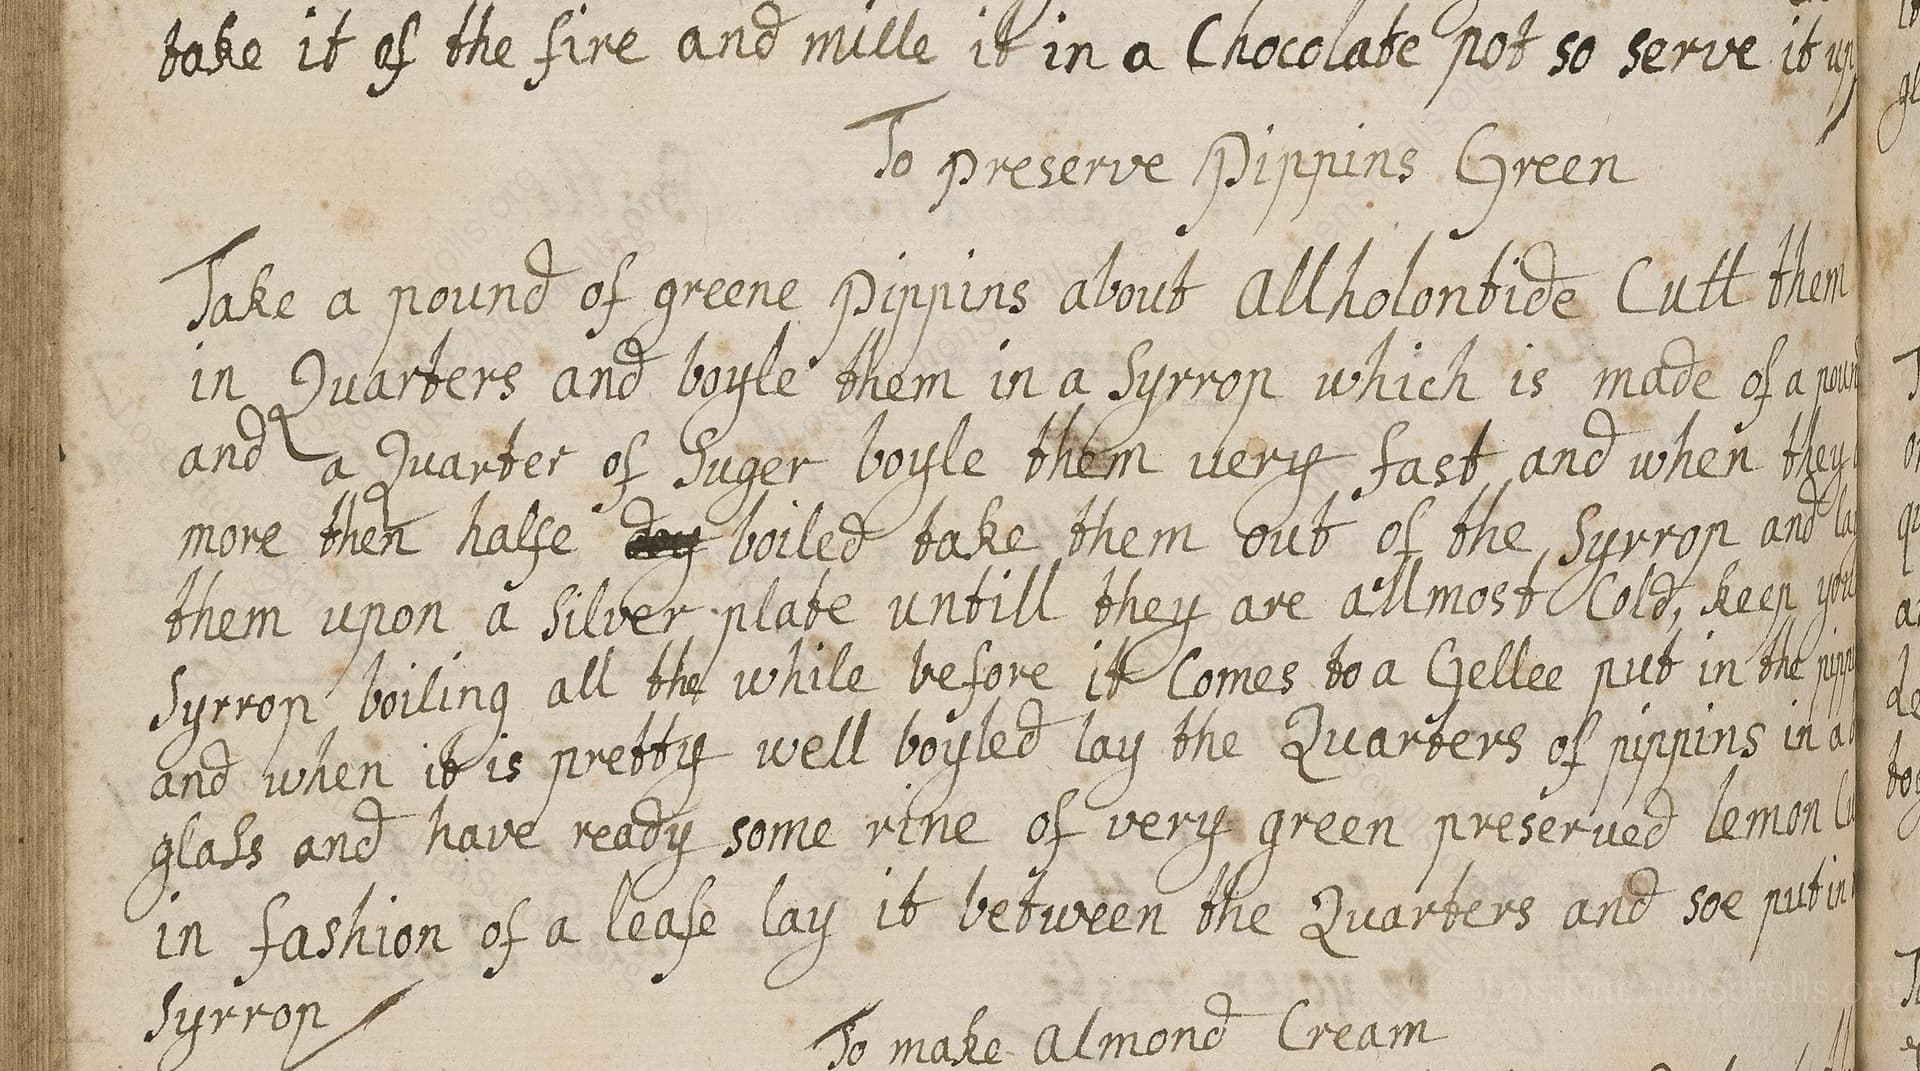 take it of the fire and mille it in a Chocolate pot so serve it up
To preserve Pippins Green
Take a pound of greene Pippins about Allholontide Cutt them
in Quarters and boyle them in a Syrrop which is made of a pound
and a Quarter of Suger boyle them very fast and when they
more then halfe boiled take them out of the Syrrop and lay
them upon a Silver plate untill they are allmost Cold, keep your
Syrrop boiling all the while before it Comes to a Gellee put in the
and when it is pretty well boyled lay the Quarters of pippins in a
glass and have ready some rine of very green preserved lemon
in fashion of a leafe lay it between the Quarters and soe put in
Syrrop
To make Almond Cream